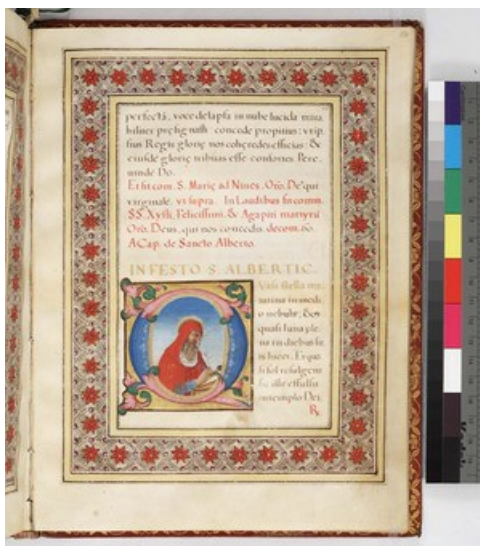 perfectā, voce delapsa in nube lucida mira
biliter pręsignasti: concede propitius: vt ip
sius Regis glorię nos cohęredes efficias: &
eiusdē glorię tribuas esse consortes. Per e
unde Do.
Et fit com. S. Marię ad Niues. Orō. De⁹ qui
virginale. vt supra. In Laudibus fit comm.
SS. Xysti, Felicissimi, & Agapiti martyrū
Orō. Deus, qui nos concedis. de com. nō.
A Cap. de Sancto Alberto.
IN FESTO S. ALBERTI C.
Vasi stella ma
tutina in medi
o nebulę, & 
quasi luna ple
na in diebus su
is lucet. Et qua
si sol refulgens
sic ille effulsit
in templo Dei.
R.